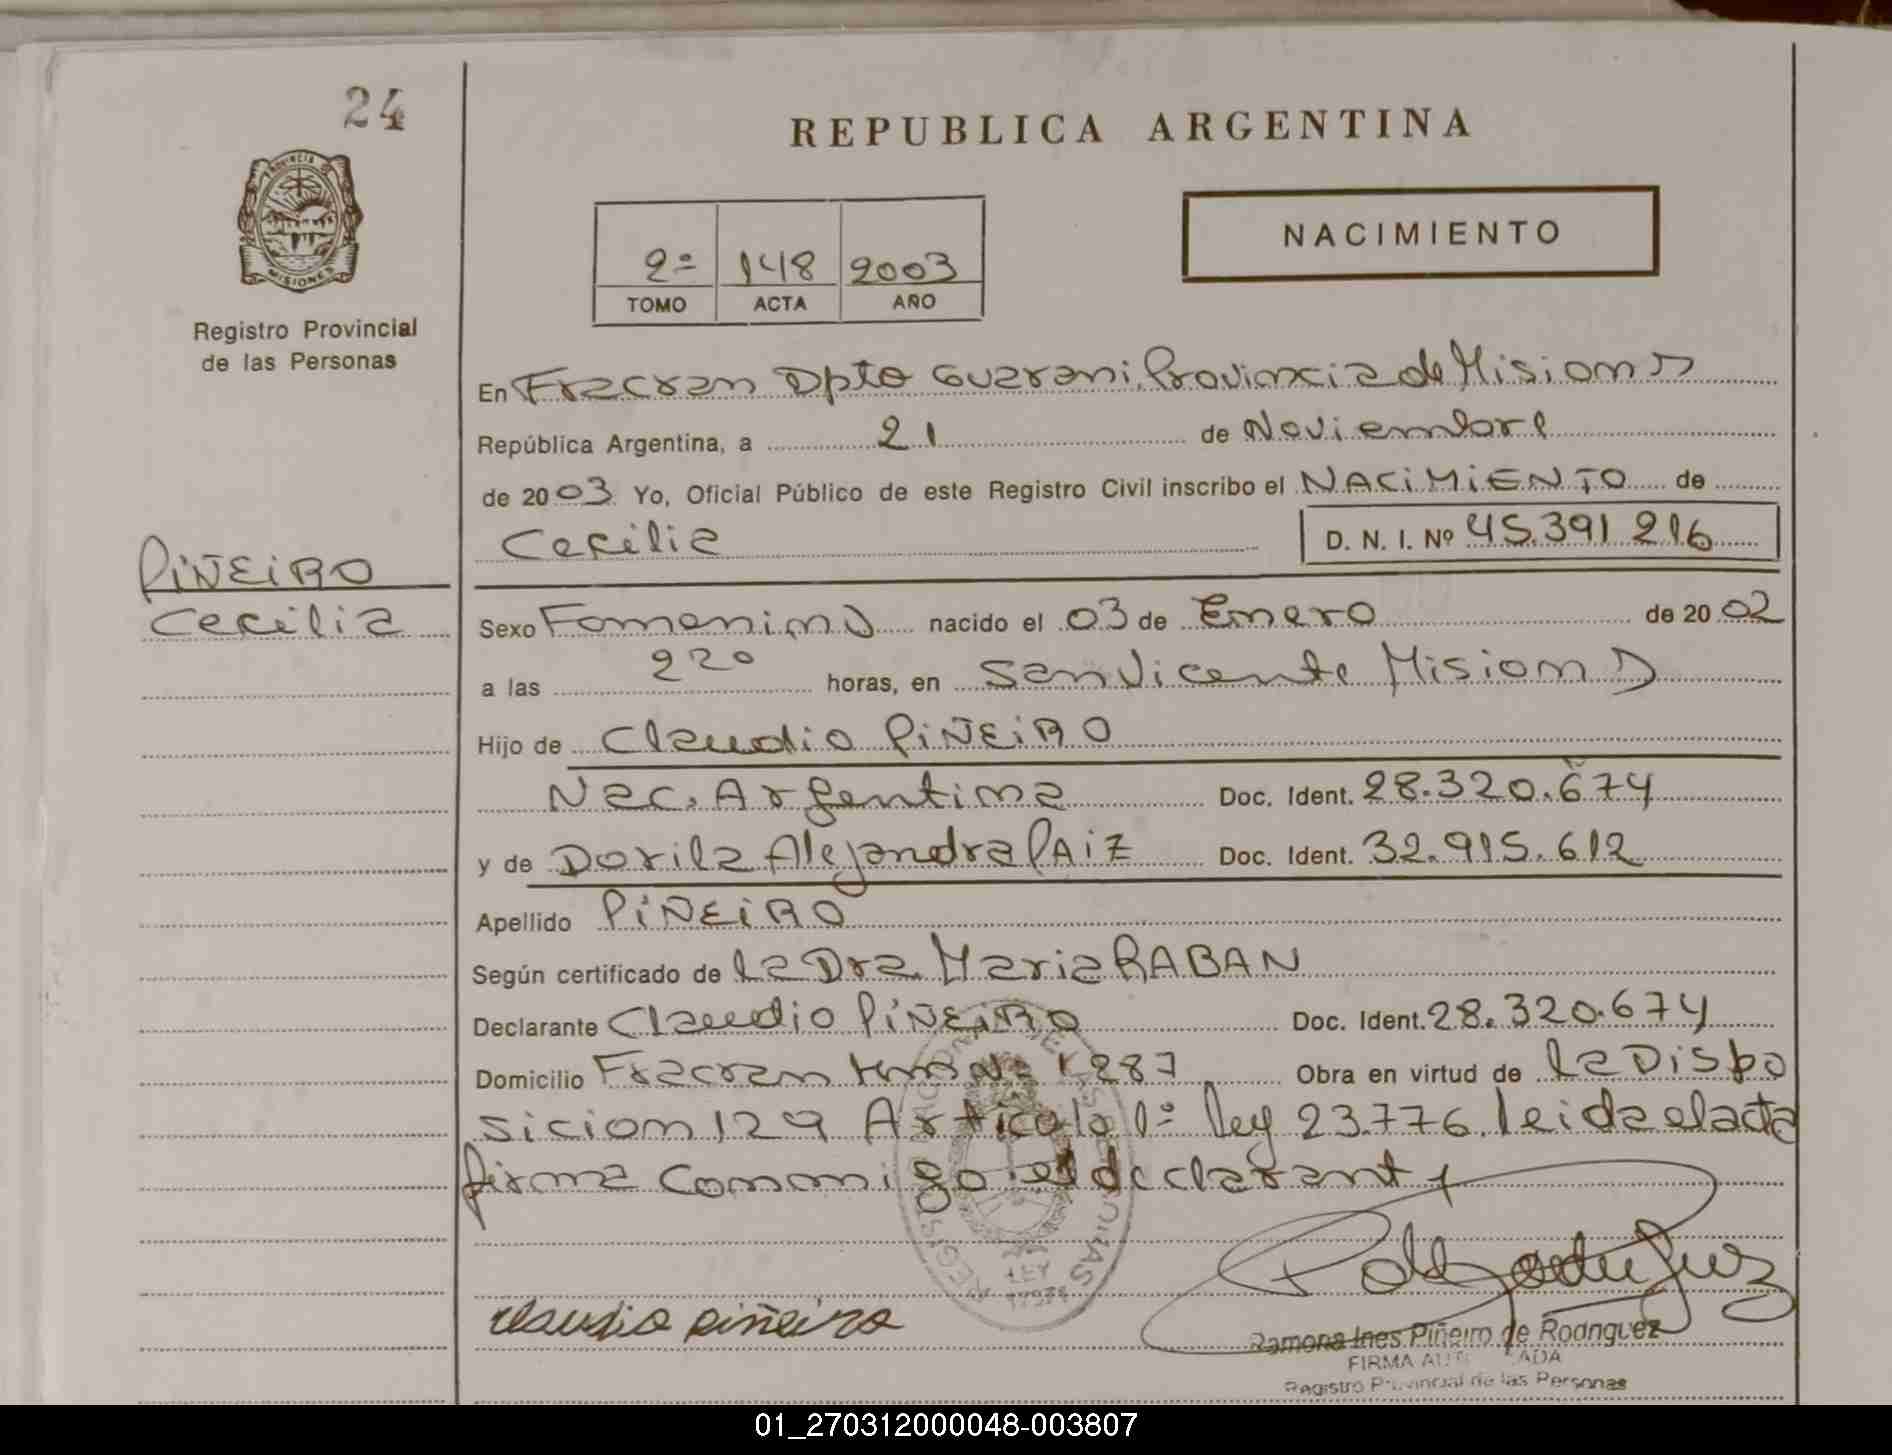 24
REPUBLICA ARGENTINA
PROVINCIA DE
MISIONES
Registro Provincial
de las Personas
2º 148 2003
TOMO ACTA AÑO
NACIMIENTO
En Fracran Dpto Guarani Provincia de Misiones
República Argentina, a 21 de Noviembre
de 2003 Yo, Oficial Público de este Registro Civil inscribo el NACIMIENTO de
Cecilia D. N. I. Nº 45.391 216
PIÑEIRO
Cecilia
Sexo Femenino nacido el 03 de Enero de 2002
a las 2²⁰ horas, en San Vicente Misiones
Hijo de Claudio PIÑEIRO
Nac. Argentina Doc. Ident. 28.320.674
y de Dorila Alejandra PAIZ Doc. Ident. 32.915.612
Apellido PIÑEIRO
Según certificado de la Dra. Maria RABAN
Declarante Claudio PIÑEIRO Doc. Ident. 28.320.674
Domicilio Fracran Km 1287 Obra en virtud de la Dispo
sicion 129 Articulo 1º ley 23.776. leida el acta
firma conmigo el declarante
LEY
claudio piñeiro
Ramona Ines Piñeiro de Rodriguez
FIRMA AUTORIZADA
Registro Provincial de las Personas
01_270312000048-003807